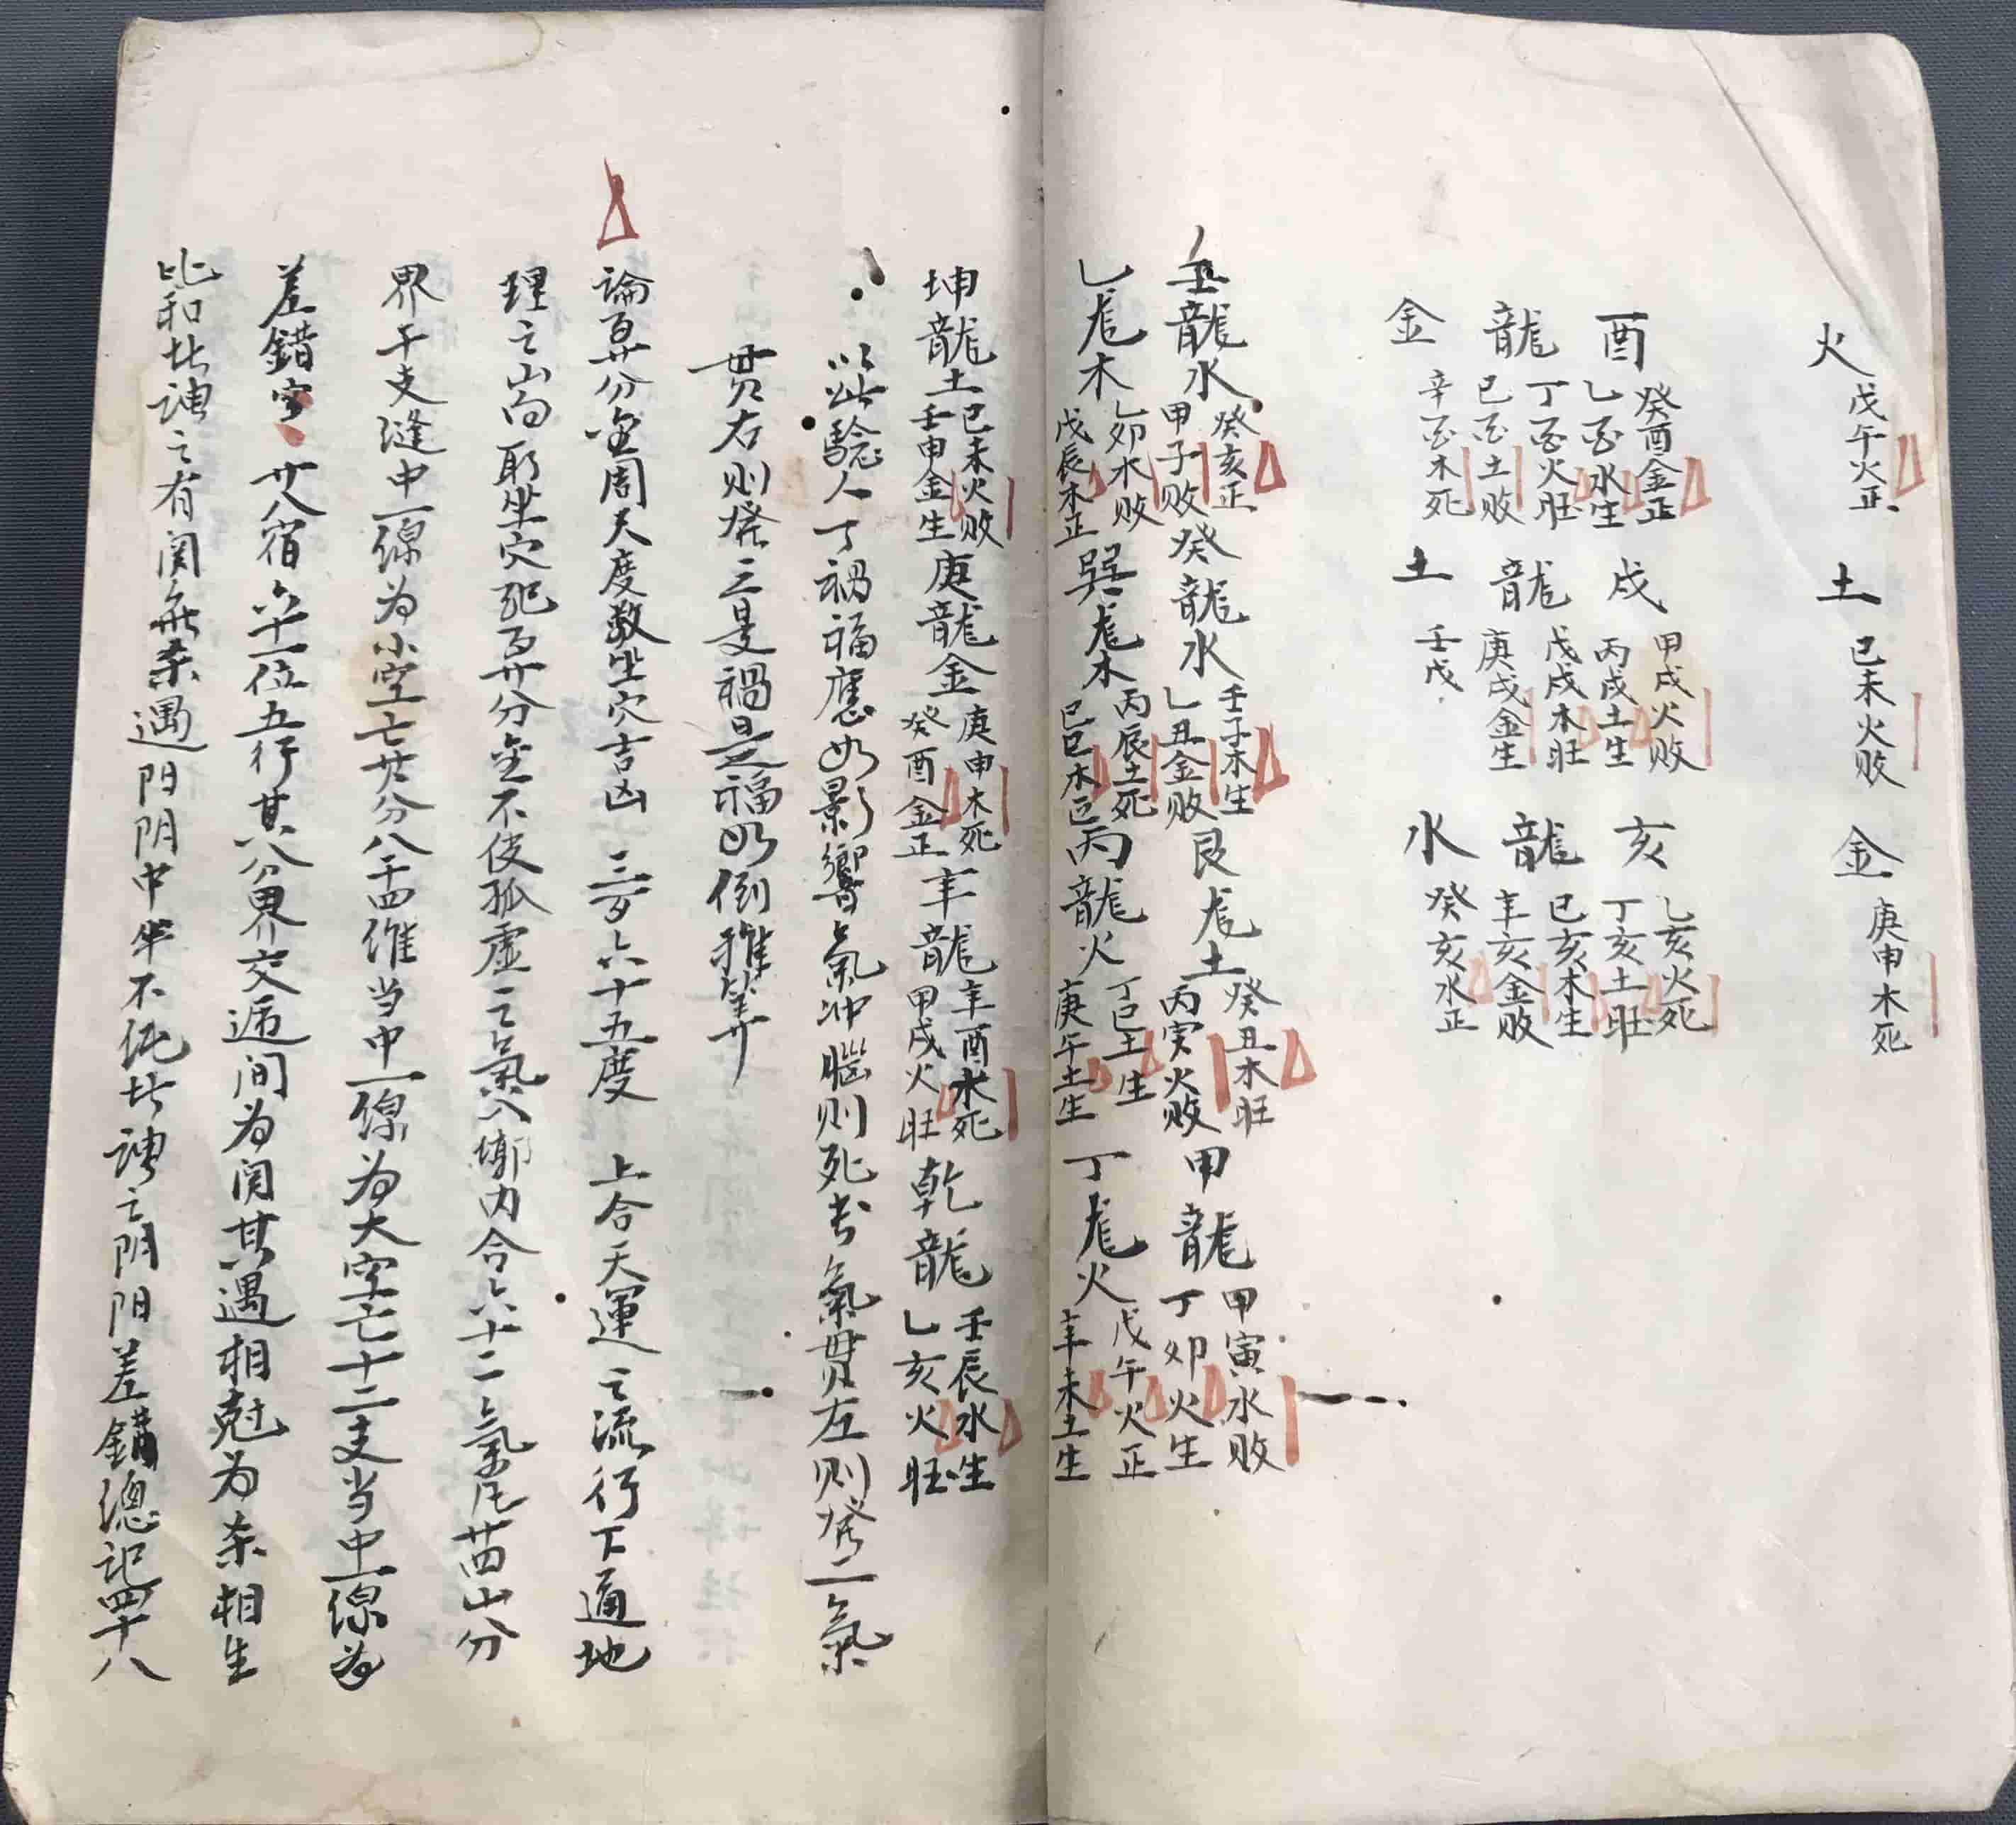 火 戊午火正 土 已未火败 金 庚申木死
酉龍金 癸酉金正 乙酉水生 丁酉火旺 已酉土败 辛酉木死
戌龍土 甲戌火败 丙戌土生 戊戌木旺 庚戌金生 壬戌
亥龍水 乙亥火死 丁亥土旺 已亥木生 辛亥金败 癸亥水正
壬龍水 癸亥正 甲子败 癸龍水 壬子木生 乙丑金败 艮龙土 癸丑木旺 丙寅火败 甲龍 甲寅水败 丁卯火生
乙龙木 乙卯水败 戊辰木正 巽龙木 丙辰土死 已巳木正 丙龍火 丁巳土生 庚午土生 丁龙火 戊午火正 辛未土生
坤龍土 已未火败 壬申金生 庚龍金 庚申木死 癸酉金正 辛龍 辛酉木死 甲戌火旺 乾龍 壬辰水生 乙亥火旺
以此驗人丁禍福應如影響氣冲腦则死書氣贯左则發二氣
贯右则發三是禍是福如倒推筭
論百廿分金周天度数坐穴吉凶 三百六十五度 上合天運之流行下通地
理之山向取坐穴犯百廿分金不使孤虚之氣入墎内合六十二氣凡廿四山分
界干支縫中一線为小空亡廿分八干四維当中一線为大空亡十二支当中一線为
差錯空 廿八宿六十一位五行其八分界交遞间为関其遇相尅为杀相生
比和皆謂之有関無杀遇阳阴中半不純皆謂之阴阳差錯總記四十八